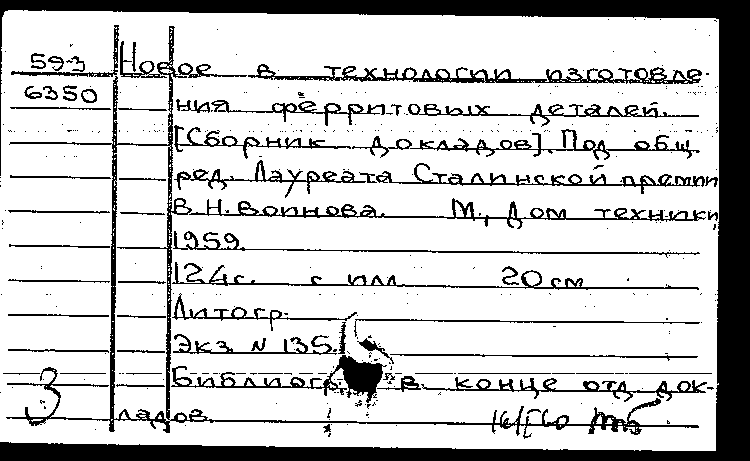 593 Новое в технологии изготовле-
6350 ния ферритовых деталей.
[Сборник докладов]. Под общ.
ред. Лауреата Сталинской премии
В.Н. Воинова. М., Дом техники,
1959.
124с. с илл 20 см
Литогр.
Экз. N 135.
Библиогр. в конце отд док-
3 ладов.